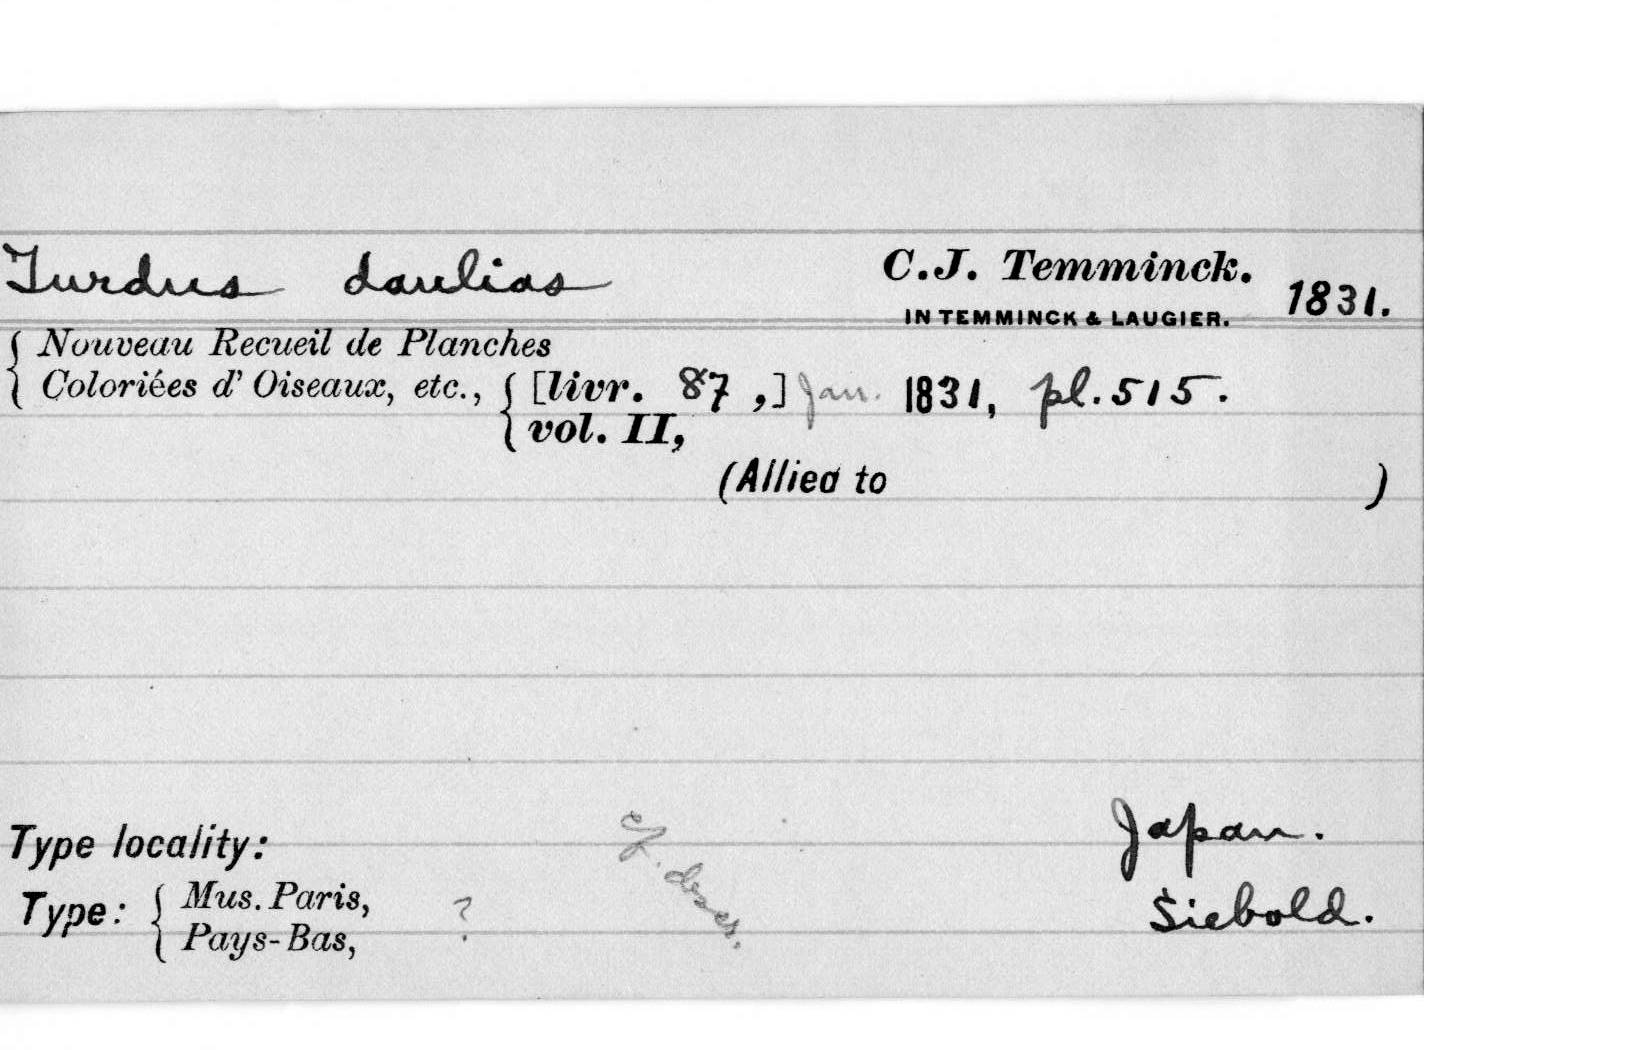 Turdus daulias C.J. Temminck. 1831.
IN TEMMINCK & LAUGIER.
Nouveau Recueil de Planches
Coloriées d' Oiseaux, etc., [livr. 87 ,] Jan. 1831, pl. 515.
vol. II,
(Allied to )
Type locality: Japan.
Type: Mus. Paris, ? cf. descr. Siebold.
Pays-Bas,